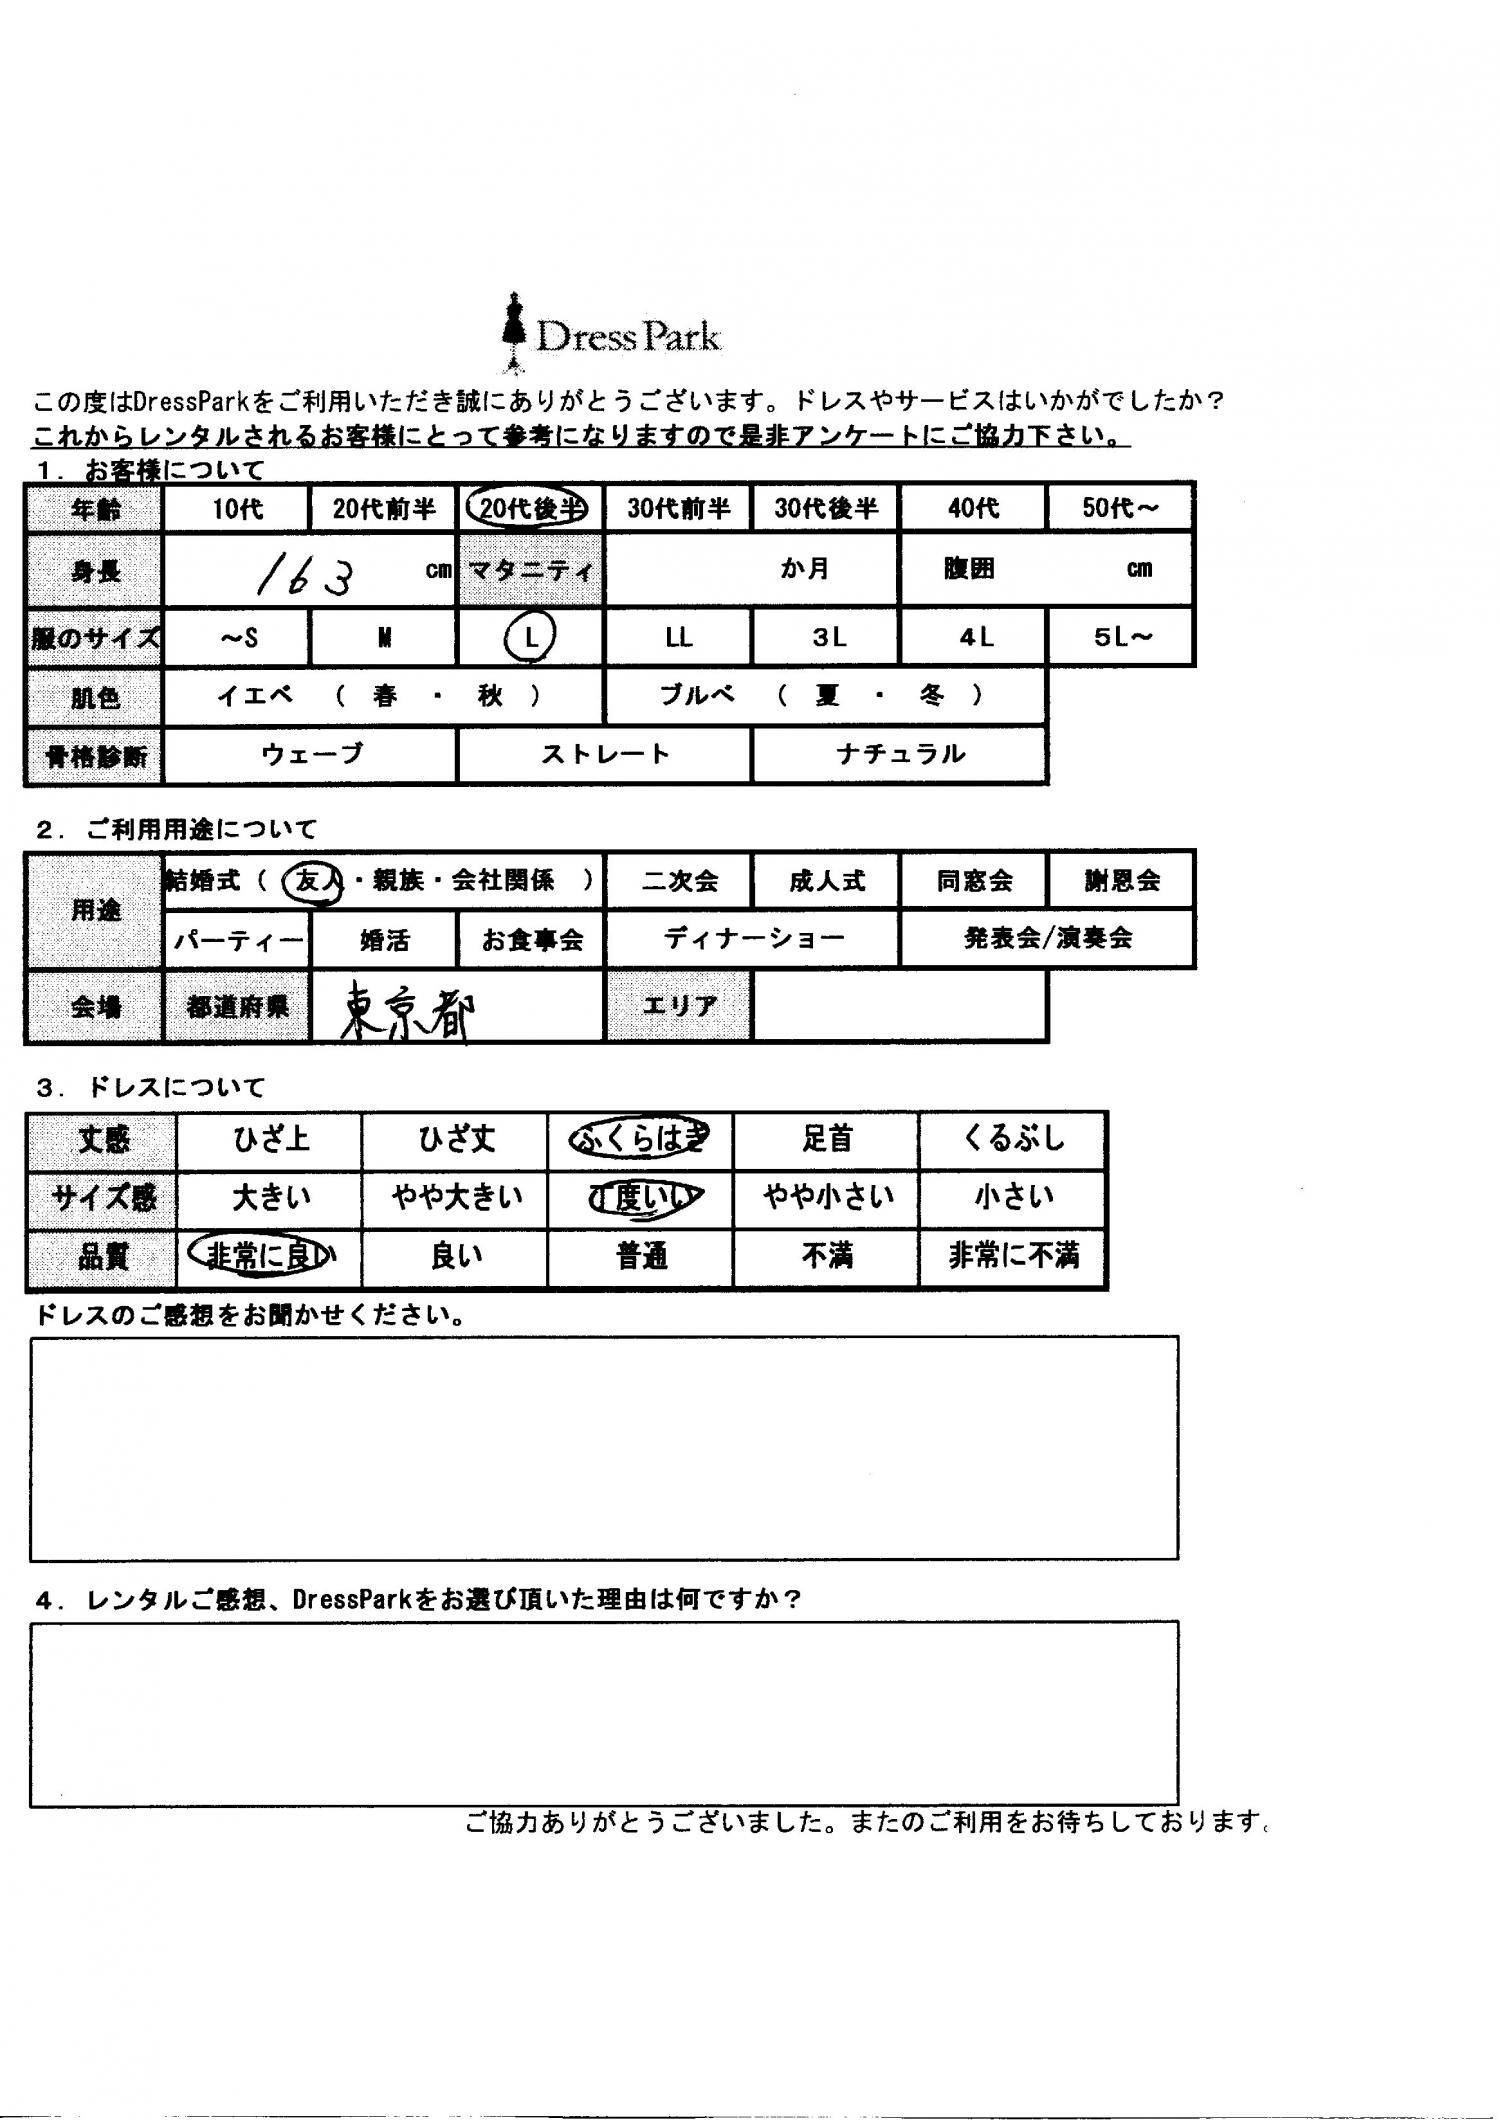 Dress Park
この度はDressParkをご利用いただき誠にありがとうございます。ドレスやサービスはいかがでしたか？
これからレンタルされるお客様にとって参考になりますので是非アンケートにご協力下さい。
１．お客様について
年齢 10代 20代前半 20代後半 30代前半 30代後半 40代 50代～
身長 163 cm マタニティ か月 腹囲 cm
服のサイズ ～S M L LL 3L 4L 5L～
肌色 イエベ （ 春 ・ 秋 ） ブルべ （ 夏 ・ 冬 ）
骨格診断 ウェーブ ストレート ナチュラル
２．ご利用用途について
用途 結婚式（ 友人・親族・会社関係 ） 二次会 成人式 同窓会 謝恩会
パーティー 婚活 お食事会 ディナーショー 発表会/演奏会
会場 都道府県 東京都 エリア
３．ドレスについて
丈感 ひざ上 ひざ丈 ふくらはぎ 足首 くるぶし
サイズ感 大きい やや大きい 丁度いい やや小さい 小さい
品質 非常に良い 良い 普通 不満 非常に不満
ドレスのご感想をお聞かせください。
４．レンタルご感想、DressParkをお選び頂いた理由は何ですか？
ご協力ありがとうございました。またのご利用をお待ちしております。